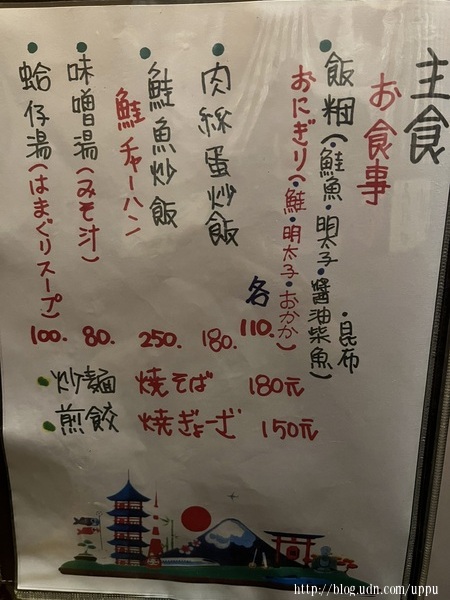 主食
お食事
飯糰(・鮭魚・明太子・醬油柴魚)
・昆布
おにぎり(・鮭・明太子・おかか)
各110.
肉絲蛋炒飯
180.
鮭魚炒飯
鮭チャーハン
250.
味噌湯(みそ汁)
80.
蛤仔湯(はまぐりスープ)
100.
炒麵 焼そば 180元
煎餃 焼ぎょーざ 150元
http://blog.udn.com/uppu